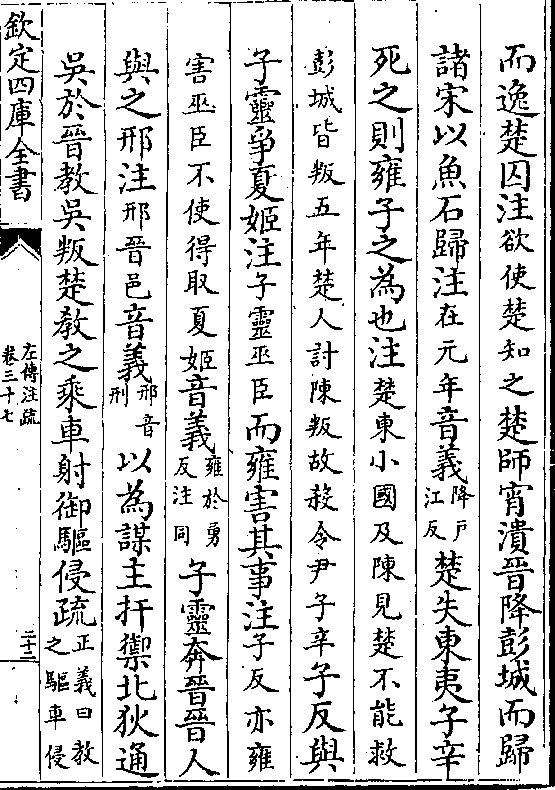 而逸楚囚注欲使楚知之楚師宵潰晉降彭城而歸
諸宋以魚石歸注在元年音義降戸江反楚失東夷子辛
死之則雍子之為也注楚東小國及陳見楚不能救
彭城皆叛五年楚人討陳叛故殺令尹子辛子反與
子靈爭夏姬注子靈巫臣而雍害其事注子反亦雍
害巫臣不使得取夏姬音義雍於勇反注同子靈奔晉晉人
與之邢注邢晉邑音義邢音刑以為謀主扞禦北狄通
吳於晉教吳叛楚教之乘車射御驅侵疏正義曰教之驅車侵
欽定四庫全書
左傳注疏
卷三十七
二十二